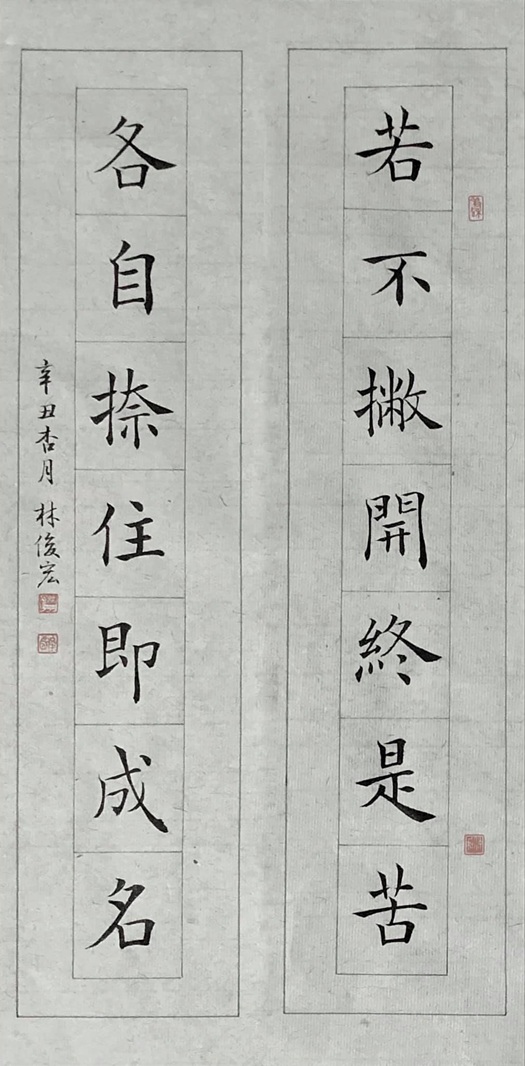 若不撇開終是苦
各自捺住即成名
辛丑杏月 林俊宏